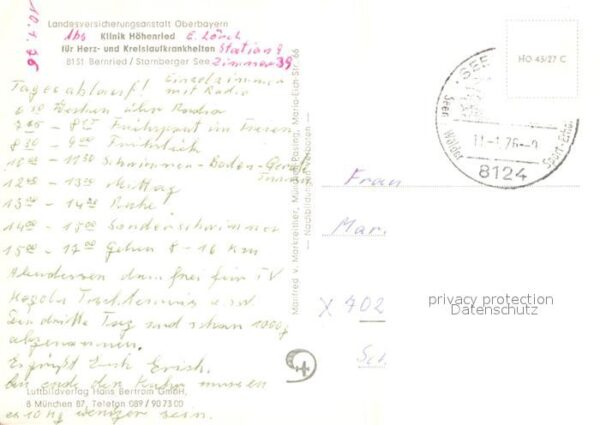 10.1.76
Landesversicherungsanstalt Oberbayern
Abs Klinik Höhenried E. Lörch
für Herz- und Kreislaufkrankheiten Station 9
8131 Bernried / Starnberger See Zimmer 39
Tagesablauf! Einzelzimmer
mit Radio
6 30 Wecken über Radio
7 45 - 8 15 Frühsport im Freien
8 30 - 9 00 Frühstück
10 00 - 11 30 Schwimmen-Boden-Geräte
Turnen
12 00 - 13 00 Mittag
13 00 - 14 00 Ruhe
14 00 - 15 00 Sonderschwimmen
15 00 - 17 00 Gehen 8 - 16 Km
Abendessen dann frei für TV
Kegeln Tischtennis u.s.w.
Der dritte Tag und schon 1000g
abgenommen.
Es grüßt Euch Erich.
Am ende der Kur müssen
es 10 Kg weniger sein.
Luftbildverlag Hans Bertram GmbH,
8 München 87, Telefon 089 / 90 73 00
Manfred v. Markreither, München-Pasing, Maria-Eich-Str. 66
— Nachbildungen verboten —
HO 45/27 C
SEE
Seen · Wälder
11.-1.76-9
Sport-Erhol
8124
Frau
Mar.
X 402
Sch
privacy protection
Datenschutz